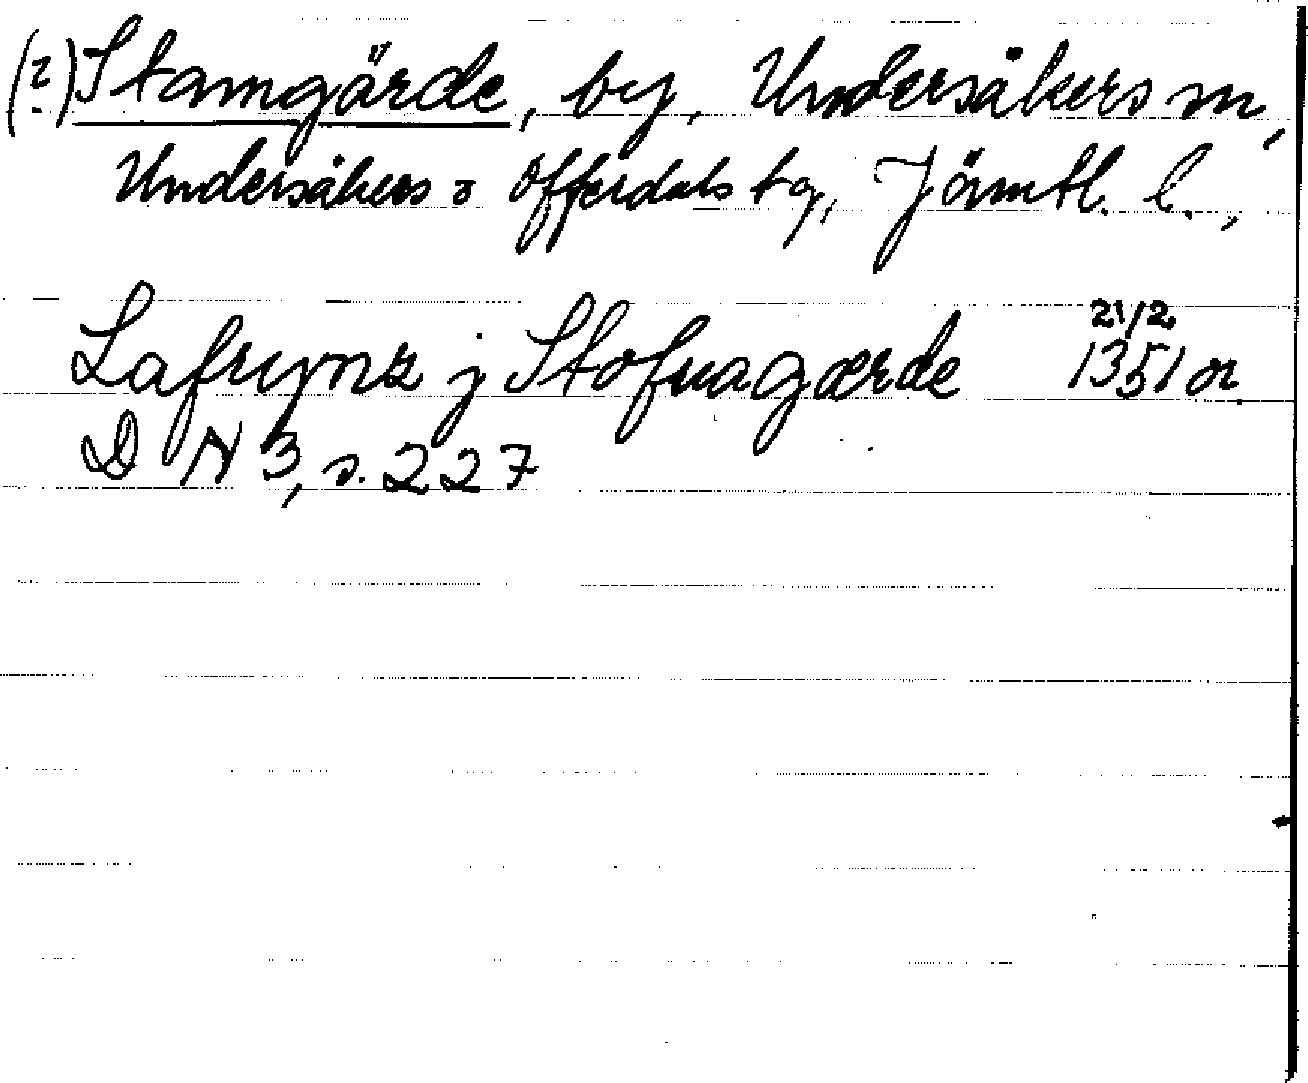 (?) Stamgärde, by, Undersåkers sn,
Undersåkers o Offerdals tg, Jämtl. l.,
Lafrynz j Stofnagærde 21/2 1351 or.
D N 3, s. 227